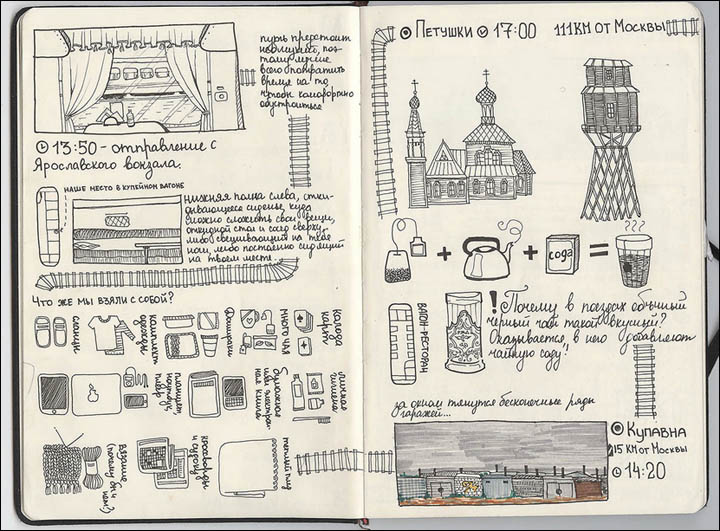 путь предстоит
неблизкий, поэ-
тому лучше
всего потратить
время на то
чтобы комфортно
обустроиться
13:50 - отправление с
Ярославского вокзала.
наше место в купейном вагоне
нижняя полка слева, отки-
дывающееся сиденье, куда
можно сложить свои вещи,
откидной стол и сосед сверху,
либо свешивающий на тебя
ноги, либо постоянно сидящий
на твоем месте.
Что же мы взяли с собой?
сланцы
комплект
одежды
Доширак
много чая
колода
карт
планшет,
ноутбук,
плеер
бумажная
или электрон-
ная книга
личная
гигиена
вязание
(почему бы и
нет?)
кроссворды
и судоку
теплый плед
Петушки 17:00 111км от Москвы
сода
???
вагон-ресторан
! Почему в поездах обычный
черный чай такой вкусный?
Оказывается, в него добавляют
чайную соду!
за окном тянутся бесконечные ряды
гаражей...
Купавна
15 км от Москвы
14:20